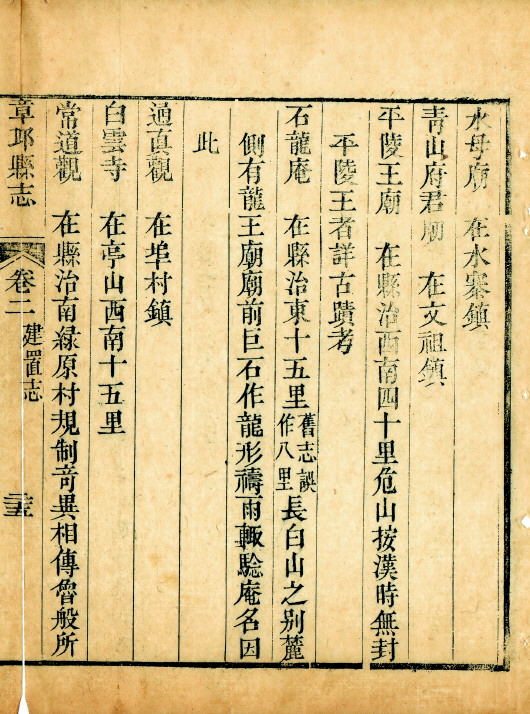 水母廟　在水寨鎮
青山府君廟　在文祖鎮
平陵王廟　在縣治西南四十里危山按漢時無封
平陵王者詳古蹟考
石龍庵　在縣治東十五里舊志誤作八里長白山之别麓
側有龍王廟廟前巨石作龍形禱雨輙騐庵名因
此
通真觀　在埠村鎮
白雲寺　在亭山西南十五里
常道觀　在縣治南緑原村規制竒異相傳魯般所
章邱縣志　卷二　建置志　三五